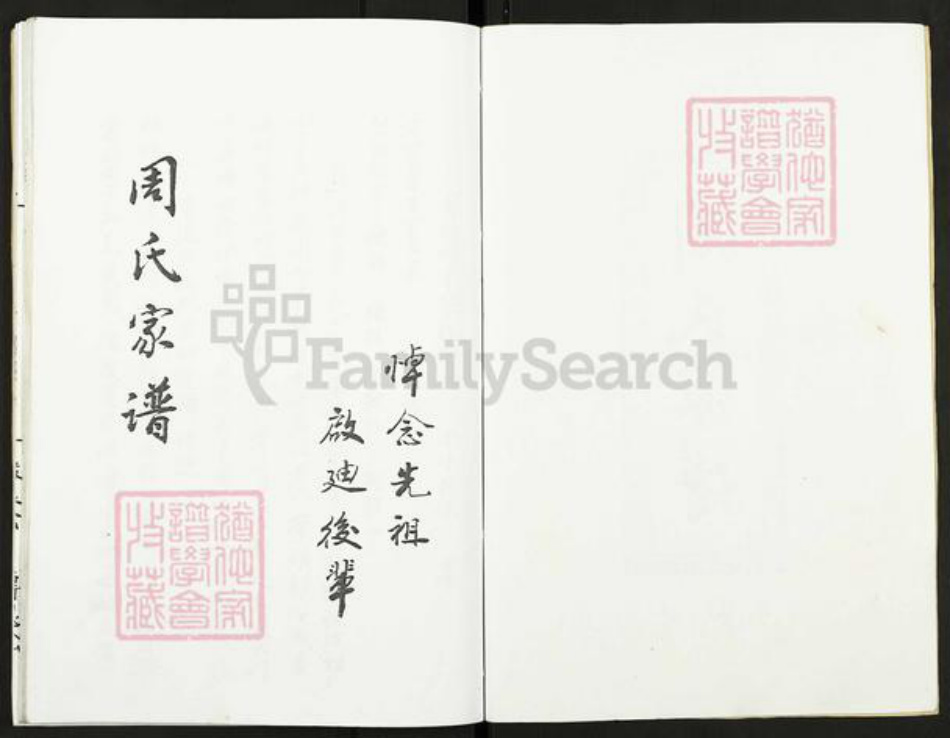 猶他家
譜學會
收藏
悼念先祖
啟迪後輩
周氏家谱
猶他家
譜學會
收藏
FamilySearch